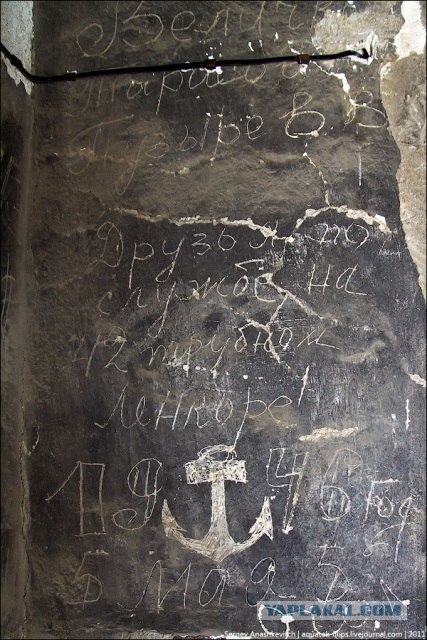 Пузыре в в
Друзья по
службе, на
42 трубном
Линкоре!
1946 год
5 Мая 5
YAPLAKAL.COM
Sergey Anashkevitch | aquatek-filips.livejournal.com | 2011